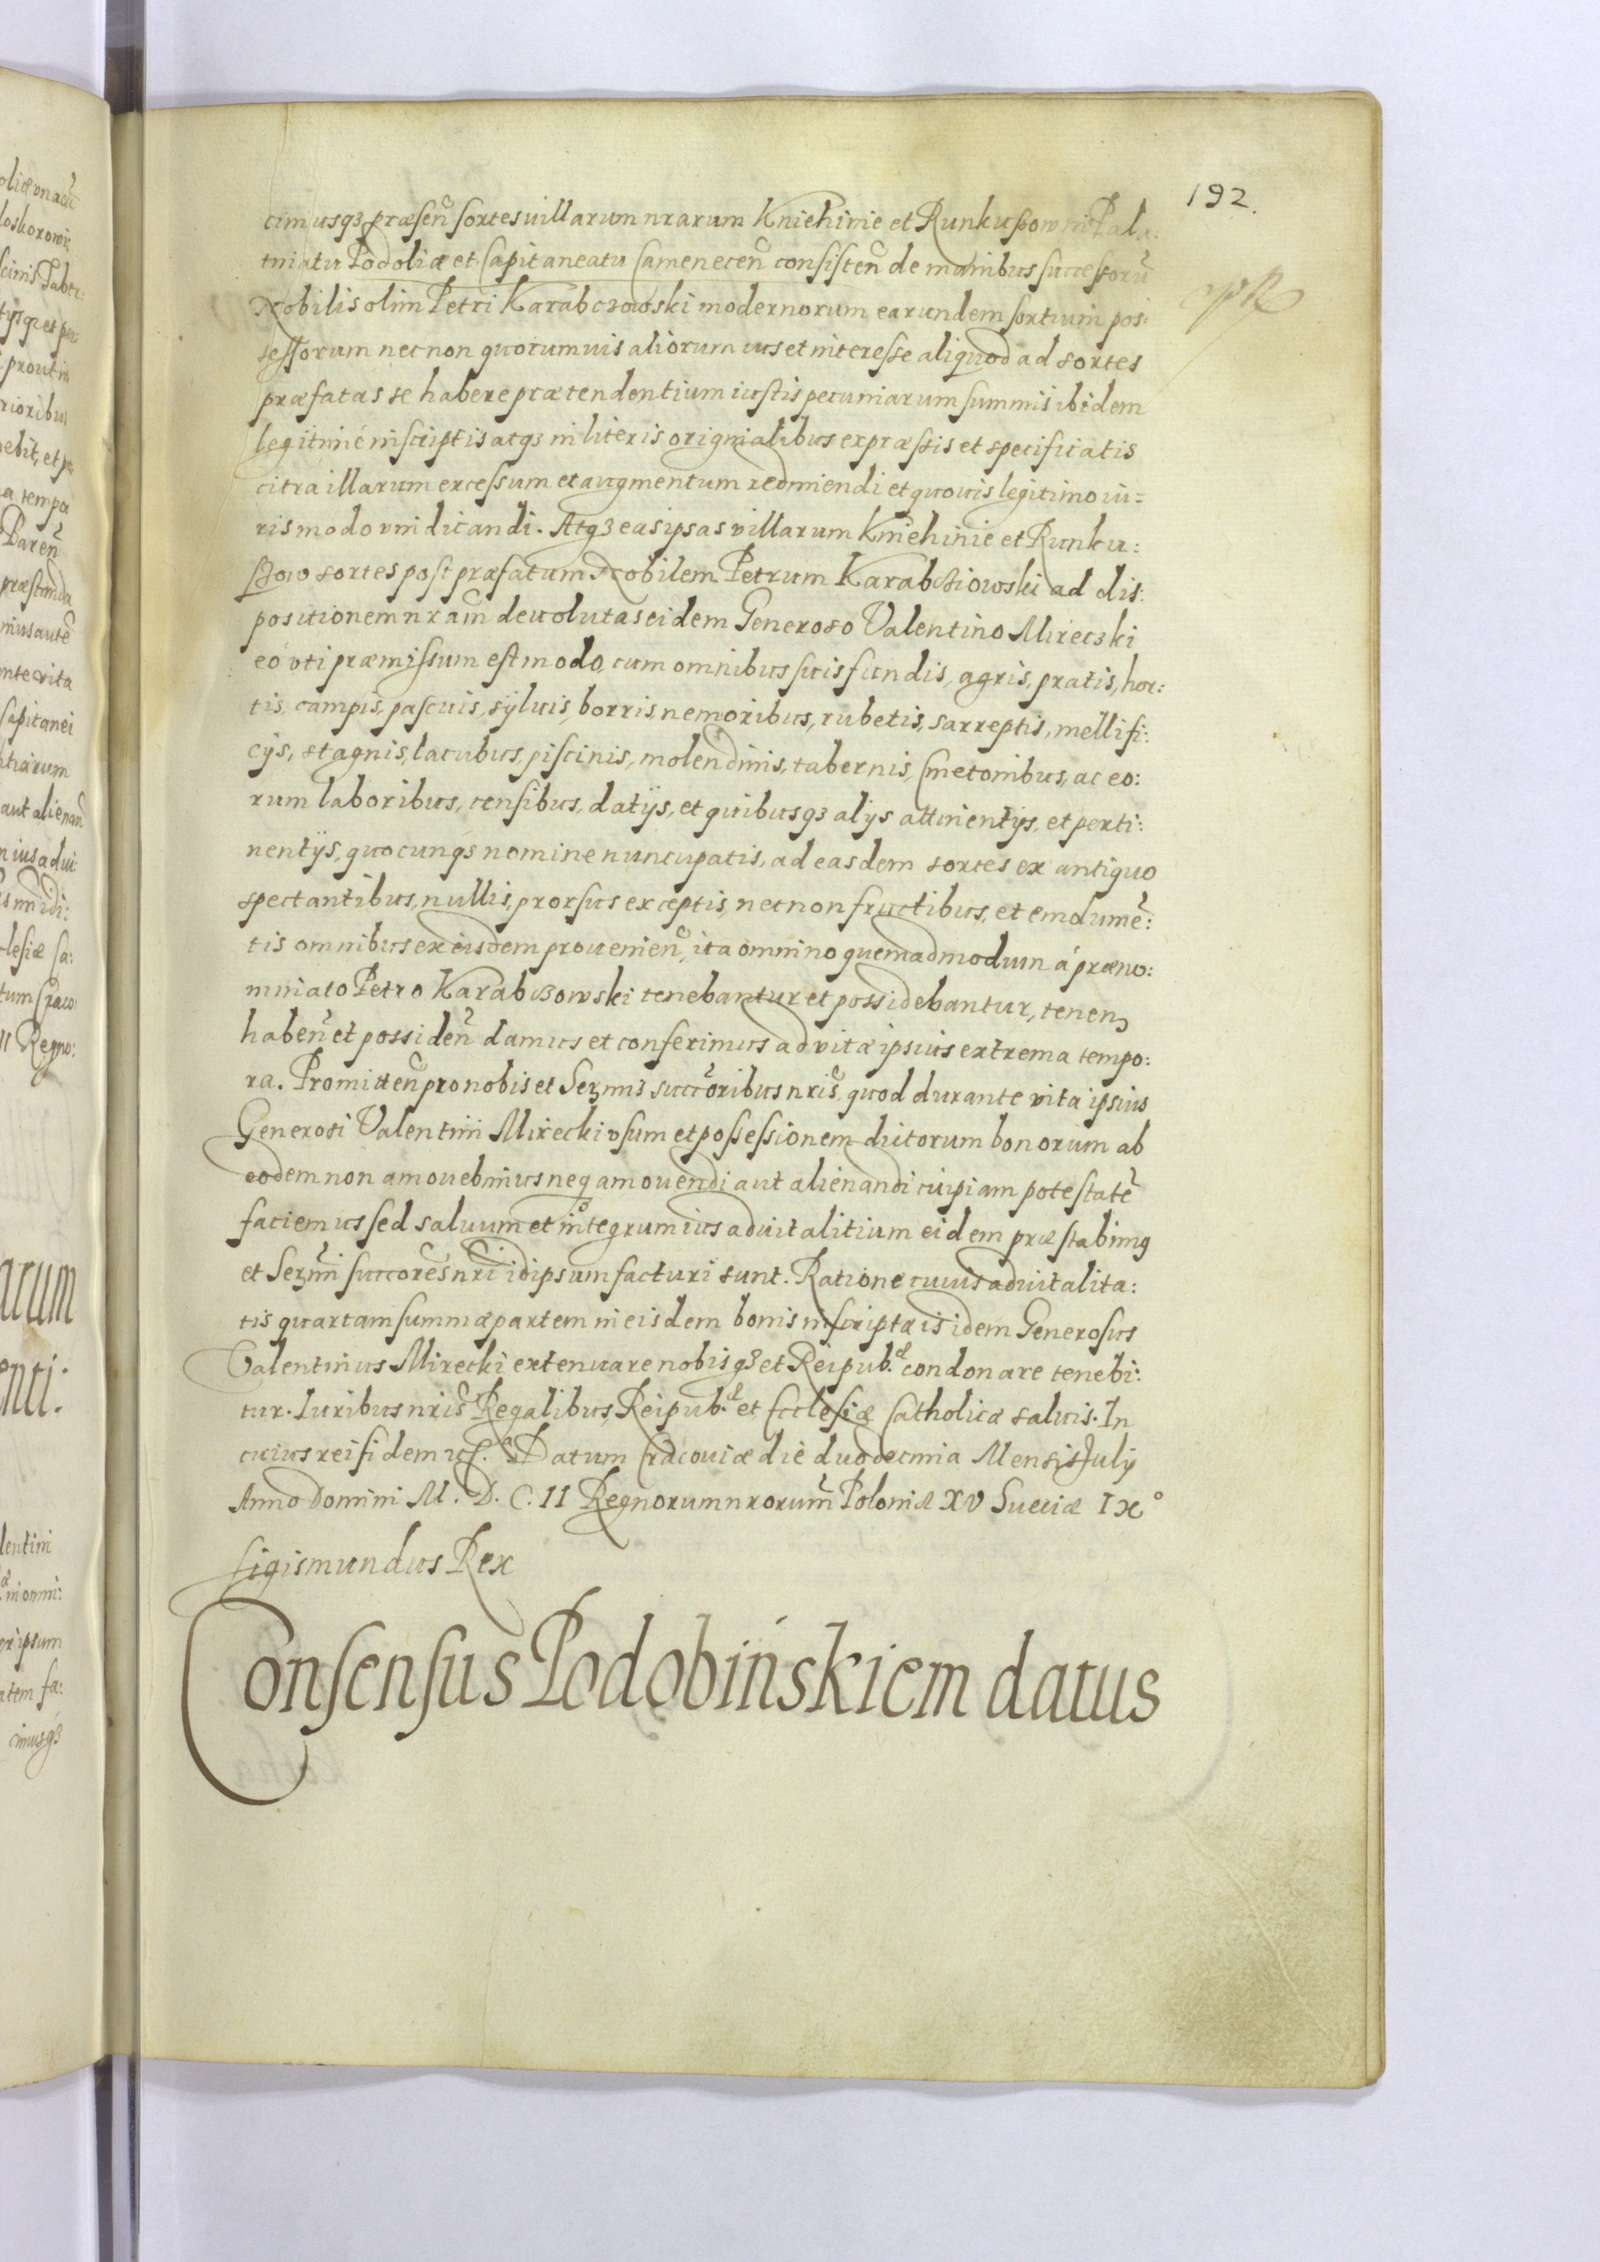 192.
cimusqʒ præsen̄ sortes villarum nrarum Kniehinie et Runkußow in Pala:
tinatu Podoliæ et Capitaneatu Camenecen̄ consisten̄ de manibus successorū
Nobilis olim Petri Karabczowski modernorum earundem sortium pos:
sessorum necnon quorumuis aliorum ius et interesse aliquod ad sortes
præfatas se habere prætendentium iustis pecuniarum summis ibidem
legitimé inscriptis atqʒ in literis originalibus expressis et specificatis
citra illarum excessum et augmentum redimendi et quouis legitimo iu=
ris modo vindicandi. Atqʒ eas ipsas villarum Kniehinie et Runku:
ßow sortes post præfatum Nobilem Petrum Karabcziowski ad dis:
positionem nram̄ deuolutas eidem Generoso Valentino Mireczki
eó vti præmissum est modo, cum omnibus suis fundis, agris, pratis, hor:
tis, campis, pascuis, syluis, borris nemoribus, rubetis, sarreptis, mellifi:
cÿs, stagnis, lacubus, piscinis, molendinis, tabernis, Cmetonibus, ac eo:
rum laboribus, censibus, datÿs, et quibusqʒ alÿs attinentÿs, et perti:
nentÿs, quocunqʒ nomine nuncupatis, ad easdem sortes ex antiquo
spectantibus, nullis, prorsus exceptis, necnon fructibus, et emolumē:
tis omnibus ex eisdem prouenien̄, ita omnino quemadmodum á præno:
minato Petro Karabczowski tenebantur et possidebantur, tenen̄
haben̄ et possiden̄ damus et conferimus ad vitæ ipsius extrema tempo:
ra. Promitten̄ pro nobis et Serʒmis succoribus nris̄, quod durante vita ipsius
Generosi Valentini Mirecki vsum et possessionem dictorum bonorum ab
eodem non amouebimus neq amouendi aut alienandi cuipiam potestatē
faciemus sed saluum et integrum ius aduitalitium eidem præstabimq
et Serʒmi succores nri idipsum facturi sunt. Ratione cuius aduitalita:
tis quartam summæ partem in eisdem bonis inscriptæ is idem Generosus
Valentinus Mirecki extenuare nobisqʒ et Reipub. condonare tenebi:
tur. Iuribus nris̄ Regalibus, Reipub. et Ecclesiæ Catholicæ saluis. In
cuius rei fidem etc. Datum Cracouiæ die duodecima Mensis July
Anno Domini M. D. C. II Regnorum nrorum̄ Poloniæ XV Sueciæ IX°
Sigismundus Rex
Consensus Podobińskiem datus